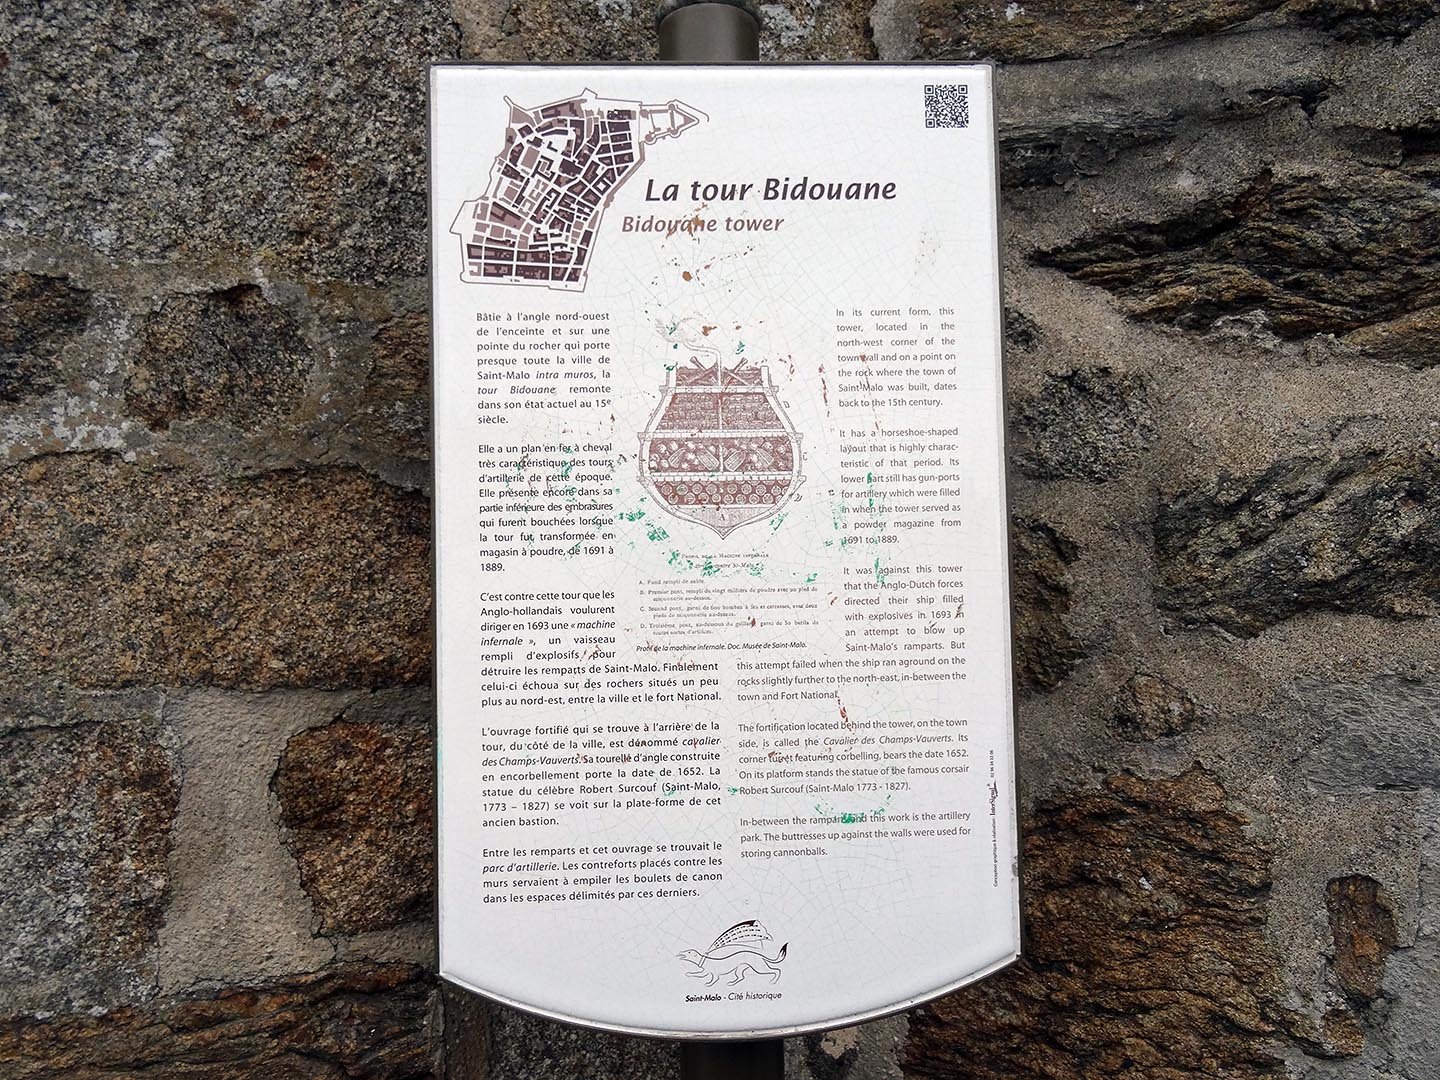 La tour Bidouane
Bidouane tower
Bâtie à l'angle nord-ouest
de l'enceinte et sur une
pointe du rocher qui porte
presque toute la ville de
Saint-Malo intra muros, la
tour Bidouane remonte
dans son état actuel au 15e
siècle.
Elle a un plan en fer à cheval
très caractéristique des tours
d'artillerie de cette époque.
Elle présente encore dans sa
partie inférieure des embrasures
qui furent bouchées lorsque
la tour fut transformée en
magasin à poudre, de 1691 à
1889.
C'est contre cette tour que les
Anglo-hollandais voulurent
diriger en 1693 une « machine
infernale », un vaisseau
rempli d'explosifs pour
détruire les remparts de Saint-Malo. Finalement
celui-ci échoua sur des rochers situés un peu
plus au nord-est, entre la ville et le fort National.
L'ouvrage fortifié qui se trouve à l'arrière de la
tour, du côté de la ville, est dénommé cavalier
des Champs-Vauverts. Sa tourelle d'angle construite
en encorbellement porte la date de 1652. La
statue du célèbre Robert Surcouf (Saint-Malo,
1773 – 1827) se voit sur la plate-forme de cet
ancien bastion.
Entre les remparts et cet ouvrage se trouvait le
parc d'artillerie. Les contreforts placés contre les
murs servaient à empiler les boulets de canon
dans les espaces délimités par ces derniers.
Profil de la Machine infernale
contre St-Malo
A. Fond rempli de sable.
B. Premier pont, rempli de vingt milliers de poudre avec un pied de
maçonnerie au-dessus.
C. Second pont, garni de 600 bombes à feu et carcasses, avec deux
pieds de maçonnerie au-dessus.
D. Troisième pont, au-dessus du gaillard, garni de 50 barils de
toutes sortes d'artifices.
Profil de la machine infernale. Doc. Musée de Saint-Malo.
In its current form, this
tower, located in the
north-west corner of the
town wall and on a point on
the rock where the town of
Saint-Malo was built, dates
back to the 15th century.
It has a horseshoe-shaped
layout that is highly charac-
teristic of that period. Its
lower part still has gun-ports
for artillery which were filled
in when the tower served as
a powder magazine from
1691 to 1889.
It was against this tower
that the Anglo-Dutch forces
directed their ship filled
with explosives in 1693 in
an attempt to blow up
Saint-Malo's ramparts. But
this attempt failed when the ship ran aground on the
rocks slightly further to the north-east, in-between the
town and Fort National.
The fortification located behind the tower, on the town
side, is called the Cavalier des Champs-Vauverts. Its
corner turret featuring corbelling, bears the date 1652.
On its platform stands the statue of the famous corsair
Robert Surcouf (Saint-Malo 1773 - 1827).
In-between the ramparts and this work is the artillery
park. The buttresses up against the walls were used for
storing cannonballs.
Conception graphique & réalisation
Saint-Malo - Cité historique